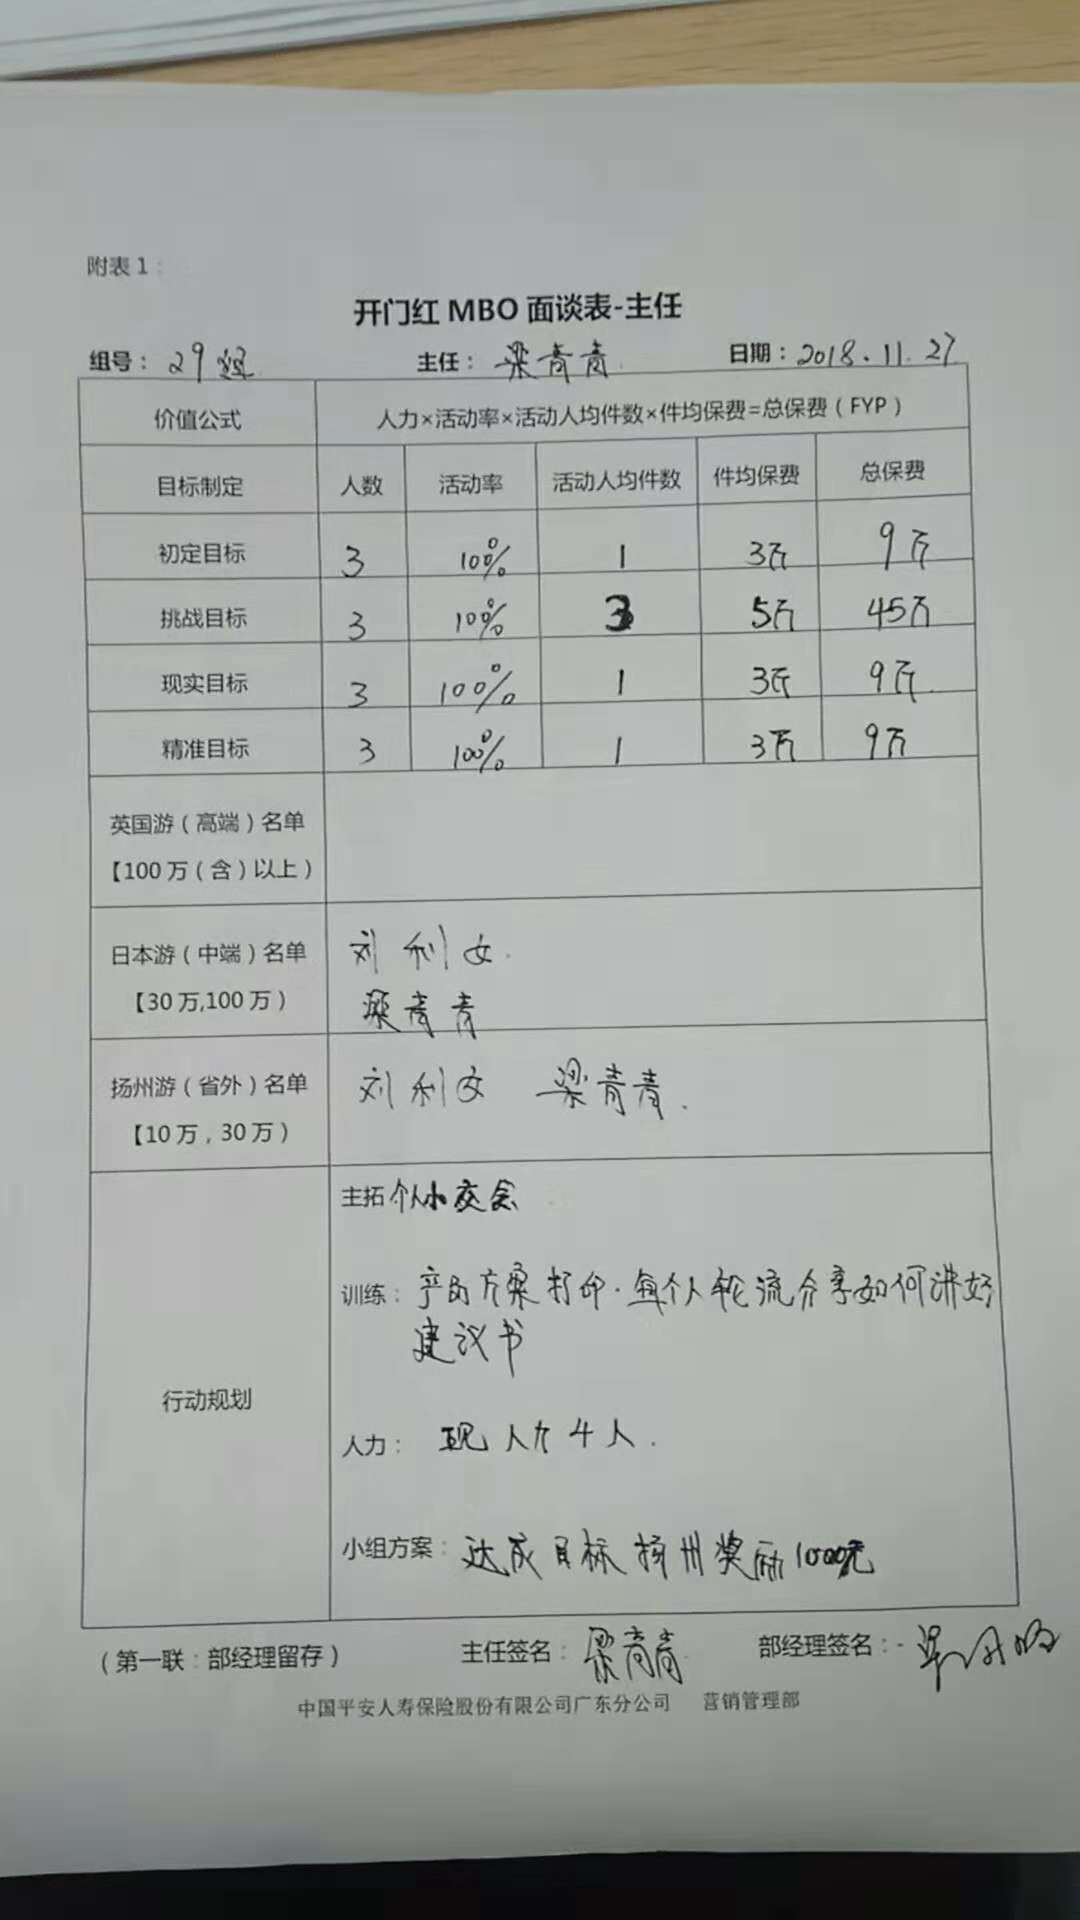 附表1：
开门红 MBO 面谈表-主任
组号：29组 主任：梁青青 日期：2018.11.27
价值公式 人力×活动率×活动人均件数×件均保费=总保费（FYP）
目标制定 人数 活动率 活动人均件数 件均保费 总保费
初定目标 3 100% 1 3万 9万
挑战目标 3 100% 3 5万 45万
现实目标 3 100% 1 3万 9万
精准目标 3 100% 1 3万 9万
英国游（高端）名单
【100万（含）以上）
日本游（中端）名单 刘利女.
【30万,100万） 梁青青
扬州游（省外）名单 刘利女 梁青青.
【10万，30万）
主拓 个人小交会
训练：产的方案打印.每个人轮流分享如何讲好
建议书
行动规划
人力：现人力4人.
小组方案：达成目标扬州奖励1000元
（第一联：部经理留存） 主任签名：梁青青 部经理签名：
中国平安人寿保险股份有限公司广东分公司 营销管理部